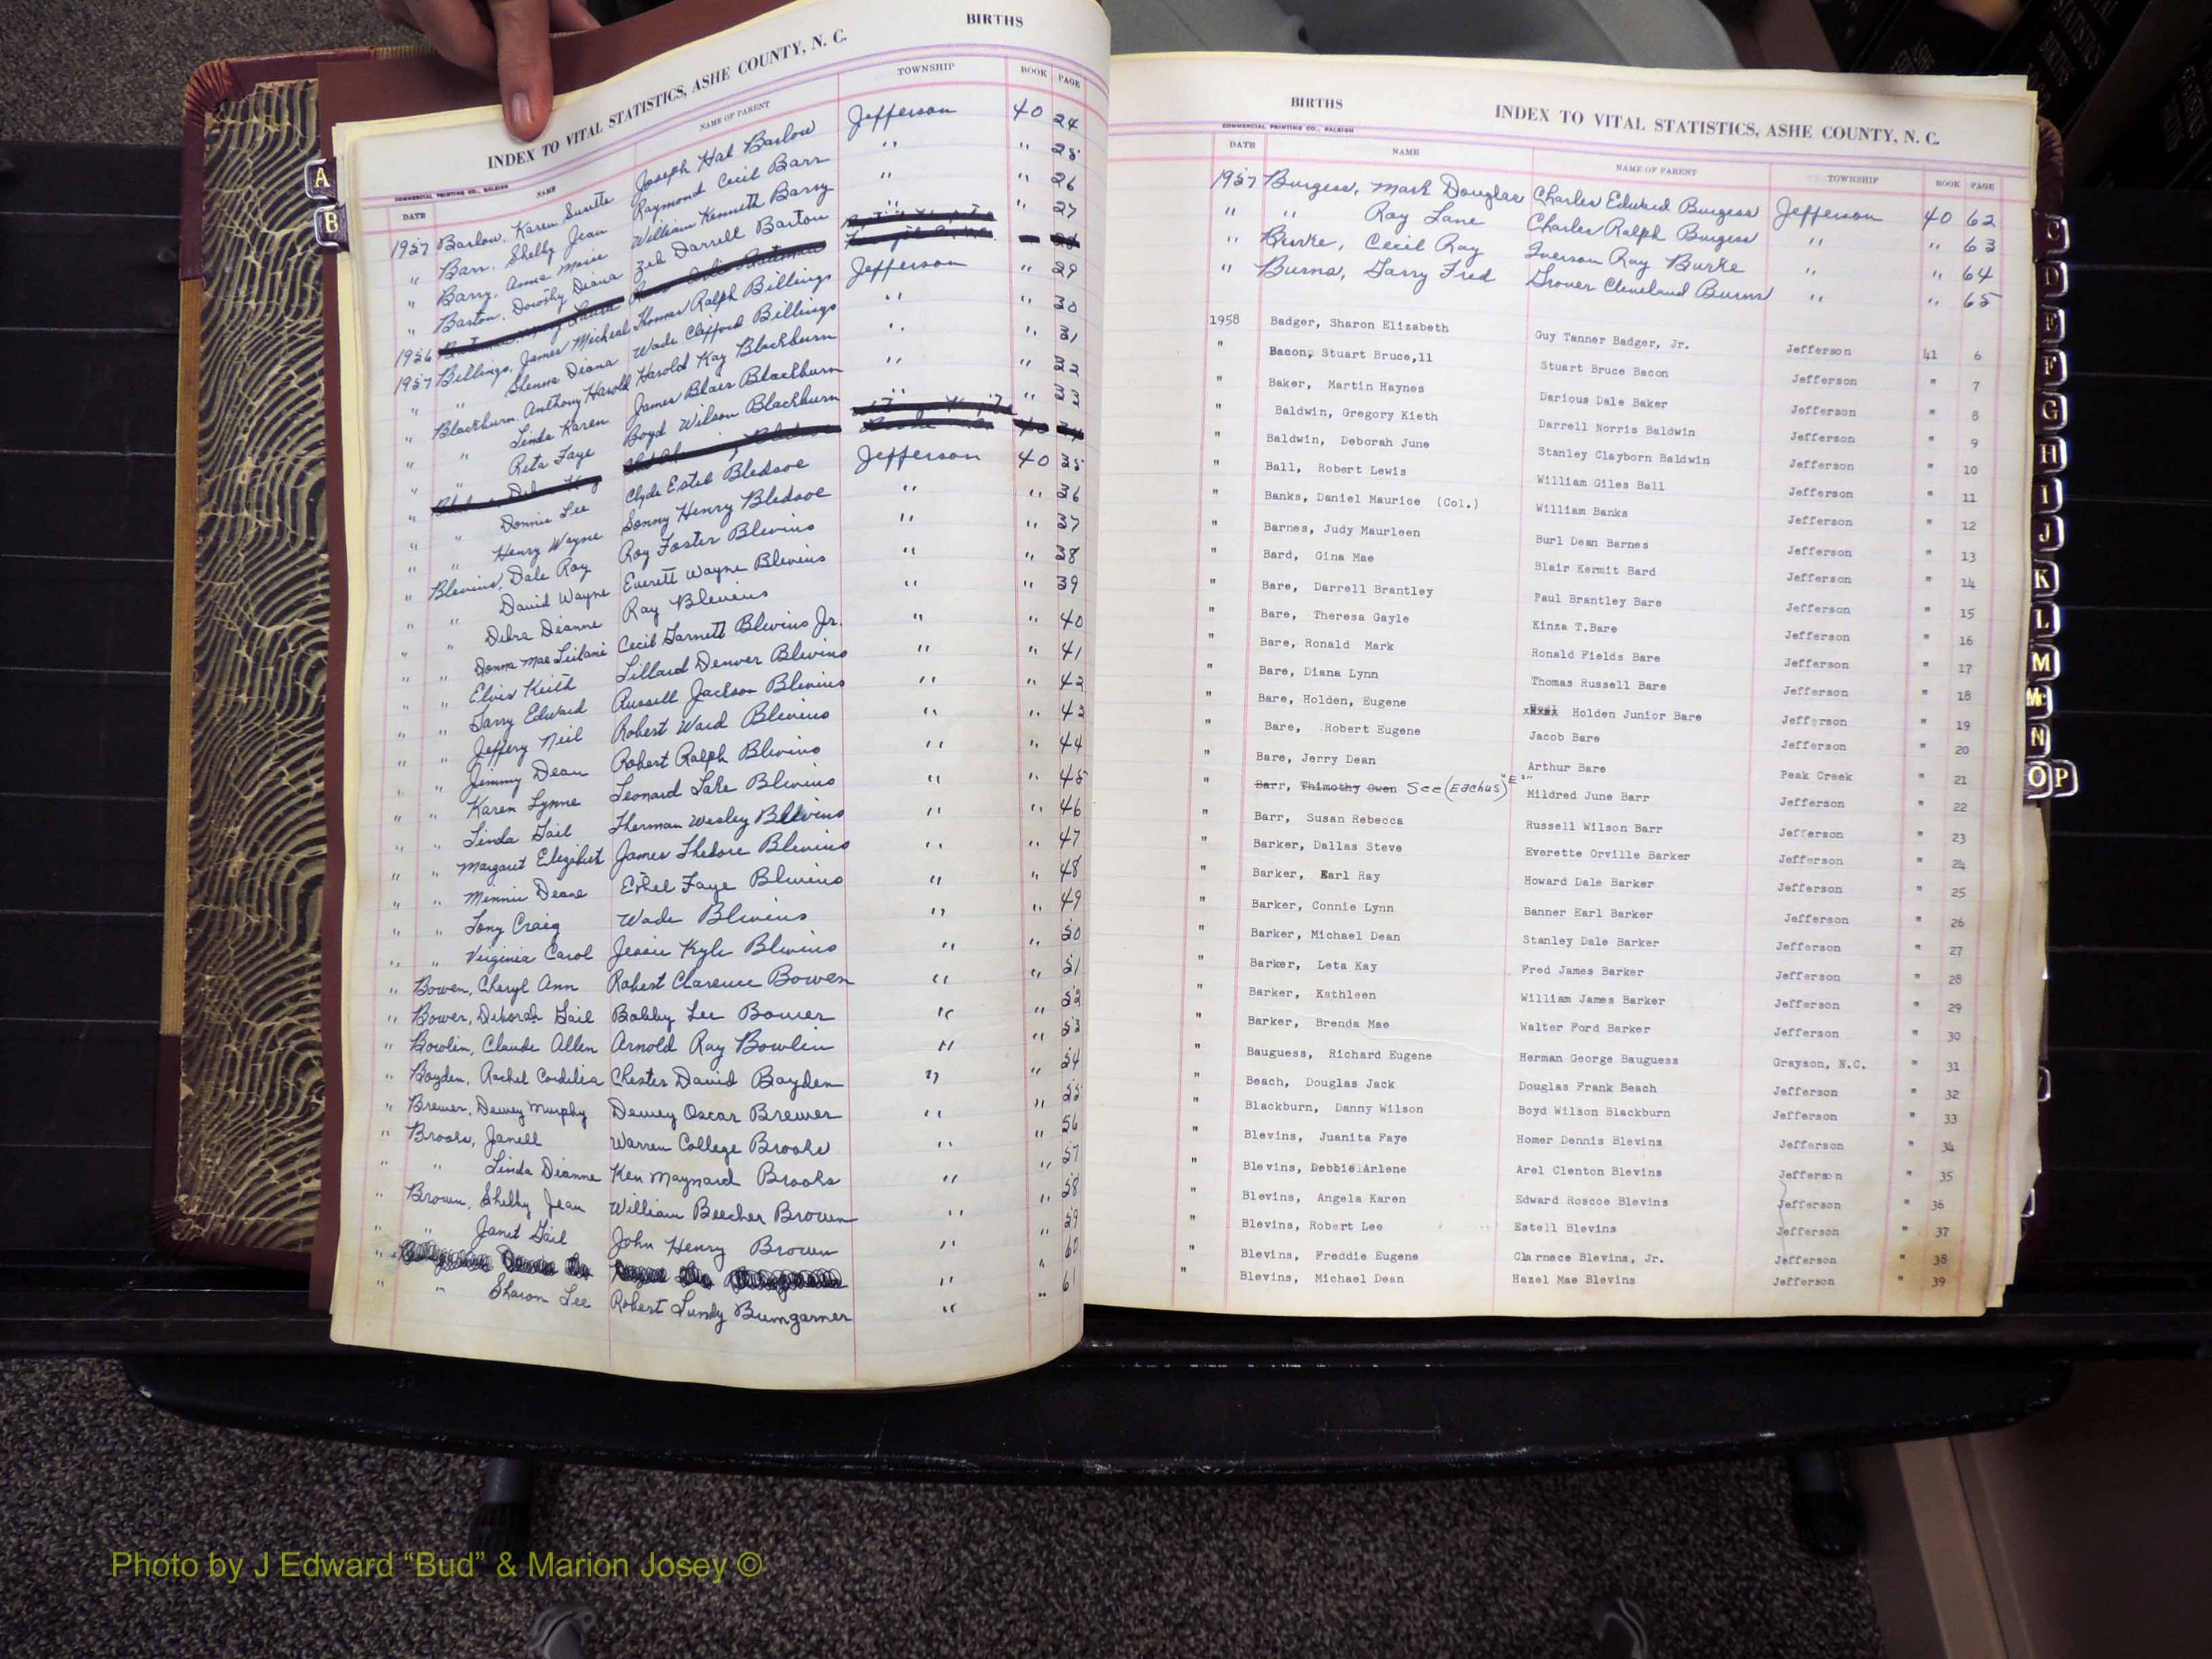 BIRTHS
INDEX TO VITAL STATISTICS, ASHE COUNTY, N. C.
COMMERCIAL PRINTING CO., RALEIGH
DATE NAME NAME OF PARENT TOWNSHIP BOOK PAGE
1957 Barlow, Karen Suzette Joseph Hal Barlow Jefferson 40 24
" Barr, Shelby Jean Raymond Cecil Barr " " 25
" Barry, Anna Marie William Kenneth Barry " " 26
" Barton, Dorothy Diana Zeb Darrell Barton " " 27
1956
1957 Billings, James Micheal Thomas Ralph Billings Jefferson " 29
" " Shenna Diana Wade Clifford Billings " " 30
" Blackburn, Anthony Harold Harold Kay Blackburn " " 31
" " Linda Karen James Blair Blackburn " " 32
" " Rita Faye Boyd Wilson Blackburn " " 33
"
" " Donnie Lee Clyde Estel Bledsoe Jefferson 40 35
" " Henry Wayne Sonny Henry Bledsoe " " 36
" Blevins, Dale Roy Roy Foster Blevins " " 37
" " David Wayne Everett Wayne Blevins " " 38
" " Debra Dianne Ray Blevins " " 39
" " Donna Mae Leilani Cecil Garnett Blevins Jr. " " 40
" " Elvis Keith Lillard Denver Blevins " " 41
" " Garry Edward Russell Jackson Blevins " " 42
" " Jeffery Neil Robert Ward Blevins " " 43
" " Jimmy Dean Robert Ralph Blevins " " 44
" " Karen Lynne Leonard Lake Blevins " " 45
" " Linda Gail Therman Wesley Blevins " " 46
" " Margaret Elizabeth James Thedore Blevins " " 47
" " Minnie Deane Ethel Faye Blevins " " 48
" " Tony Craig Wade Blevins " " 49
" " Virginia Carol Jessie Kyle Blevins " " 50
" Bowen, Cheryl Ann Robert Clarence Bowen " " 51
" Bower, Deborah Gail Bobby Lee Bower " " 52
" Bowlin, Claude Allen Arnold Ray Bowlin " " 53
" Boyden, Rachel Cordelia Chester David Boyden " " 54
" Brewer, Dewey Murphy Dewey Oscar Brewer " " 55
" Brooks, Janell Warren College Brooks " " 56
" " Linda Dianne Ken Maynard Brooks " " 57
" Brown, Shelby Jean William Beecher Brown " " 58
" " Janet Gail John Henry Brown " " 59
" " " 60
" " Sharon Lee Robert Lundy Bumgarner " " 61
BIRTHS
INDEX TO VITAL STATISTICS, ASHE COUNTY, N. C.
COMMERCIAL PRINTING CO., RALEIGH
DATE NAME NAME OF PARENT TOWNSHIP BOOK PAGE
1957 Burgess, Mark Douglas Charles Edward Burgess Jefferson 40 62
" " Ray Lane Charles Ralph Burgess " " 63
" Burke, Cecil Ray Iverson Ray Burke " " 64
" Burns, Garry Fred Grover Cleveland Burns " " 65
1958 Badger, Sharon Elizabeth Guy Tanner Badger, Jr. Jefferson 41 6
" Bacon, Stuart Bruce,11 Stuart Bruce Bacon Jefferson " 7
" Baker, Martin Haynes Darious Dale Baker Jefferson " 8
" Baldwin, Gregory Kieth Darrell Norris Baldwin Jefferson " 9
" Baldwin, Deborah June Stanley Clayborn Baldwin Jefferson " 10
" Ball, Robert Lewis William Giles Ball Jefferson " 11
" Banks, Daniel Maurice (Col.) William Banks Jefferson " 12
" Barnes, Judy Maurleen Burl Dean Barnes Jefferson " 13
" Bard, Gina Mae Blair Kermit Bard Jefferson " 14
" Bare, Darrell Brantley Paul Brantley Bare Jefferson " 15
" Bare, Theresa Gayle Kinza T.Bare Jefferson " 16
" Bare, Ronald Mark Ronald Fields Bare Jefferson " 17
" Bare, Diana Lynn Thomas Russell Bare Jefferson " 18
" Bare, Holden, Eugene Holden Junior Bare Jefferson " 19
" Bare, Robert Eugene Jacob Bare Jefferson " 20
" Bare, Jerry Dean Arthur Bare Peak Creek " 21
" Barr, Thimothy Owen See (Eachus) "E" Mildred June Barr Jefferson " 22
" Barr, Susan Rebecca Russell Wilson Barr Jefferson " 23
" Barker, Dallas Steve Everette Orville Barker Jefferson " 24
" Barker, Earl Ray Howard Dale Barker Jefferson " 25
" Barker, Connie Lynn Banner Earl Barker Jefferson " 26
" Barker, Michael Dean Stanley Dale Barker Jefferson " 27
" Barker, Leta Kay Fred James Barker Jefferson " 28
" Barker, Kathleen William James Barker Jefferson " 29
" Barker, Brenda Mae Walter Ford Barker Jefferson " 30
" Bauguess, Richard Eugene Herman George Bauguess Grayson, N.C. " 31
" Beach, Douglas Jack Douglas Frank Beach Jefferson " 32
" Blackburn, Danny Wilson Boyd Wilson Blackburn Jefferson " 33
" Blevins, Juanita Faye Homer Dennis Blevins Jefferson " 34
" Blevins, Debbie Arlene Arel Clenton Blevins Jefferson " 35
" Blevins, Angela Karen Edward Roscoe Blevins Jefferson " 36
" Blevins, Robert Lee Estell Blevins Jefferson " 37
" Blevins, Freddie Eugene Clarnece Blevins, Jr. Jefferson " 38
" Blevins, Michael Dean Hazel Mae Blevins Jefferson " 39
A
B
C
D
E
F
G
H
I
J
K
L
M
Mc
N
O P
Photo by J Edward “Bud” & Marion Josey ©